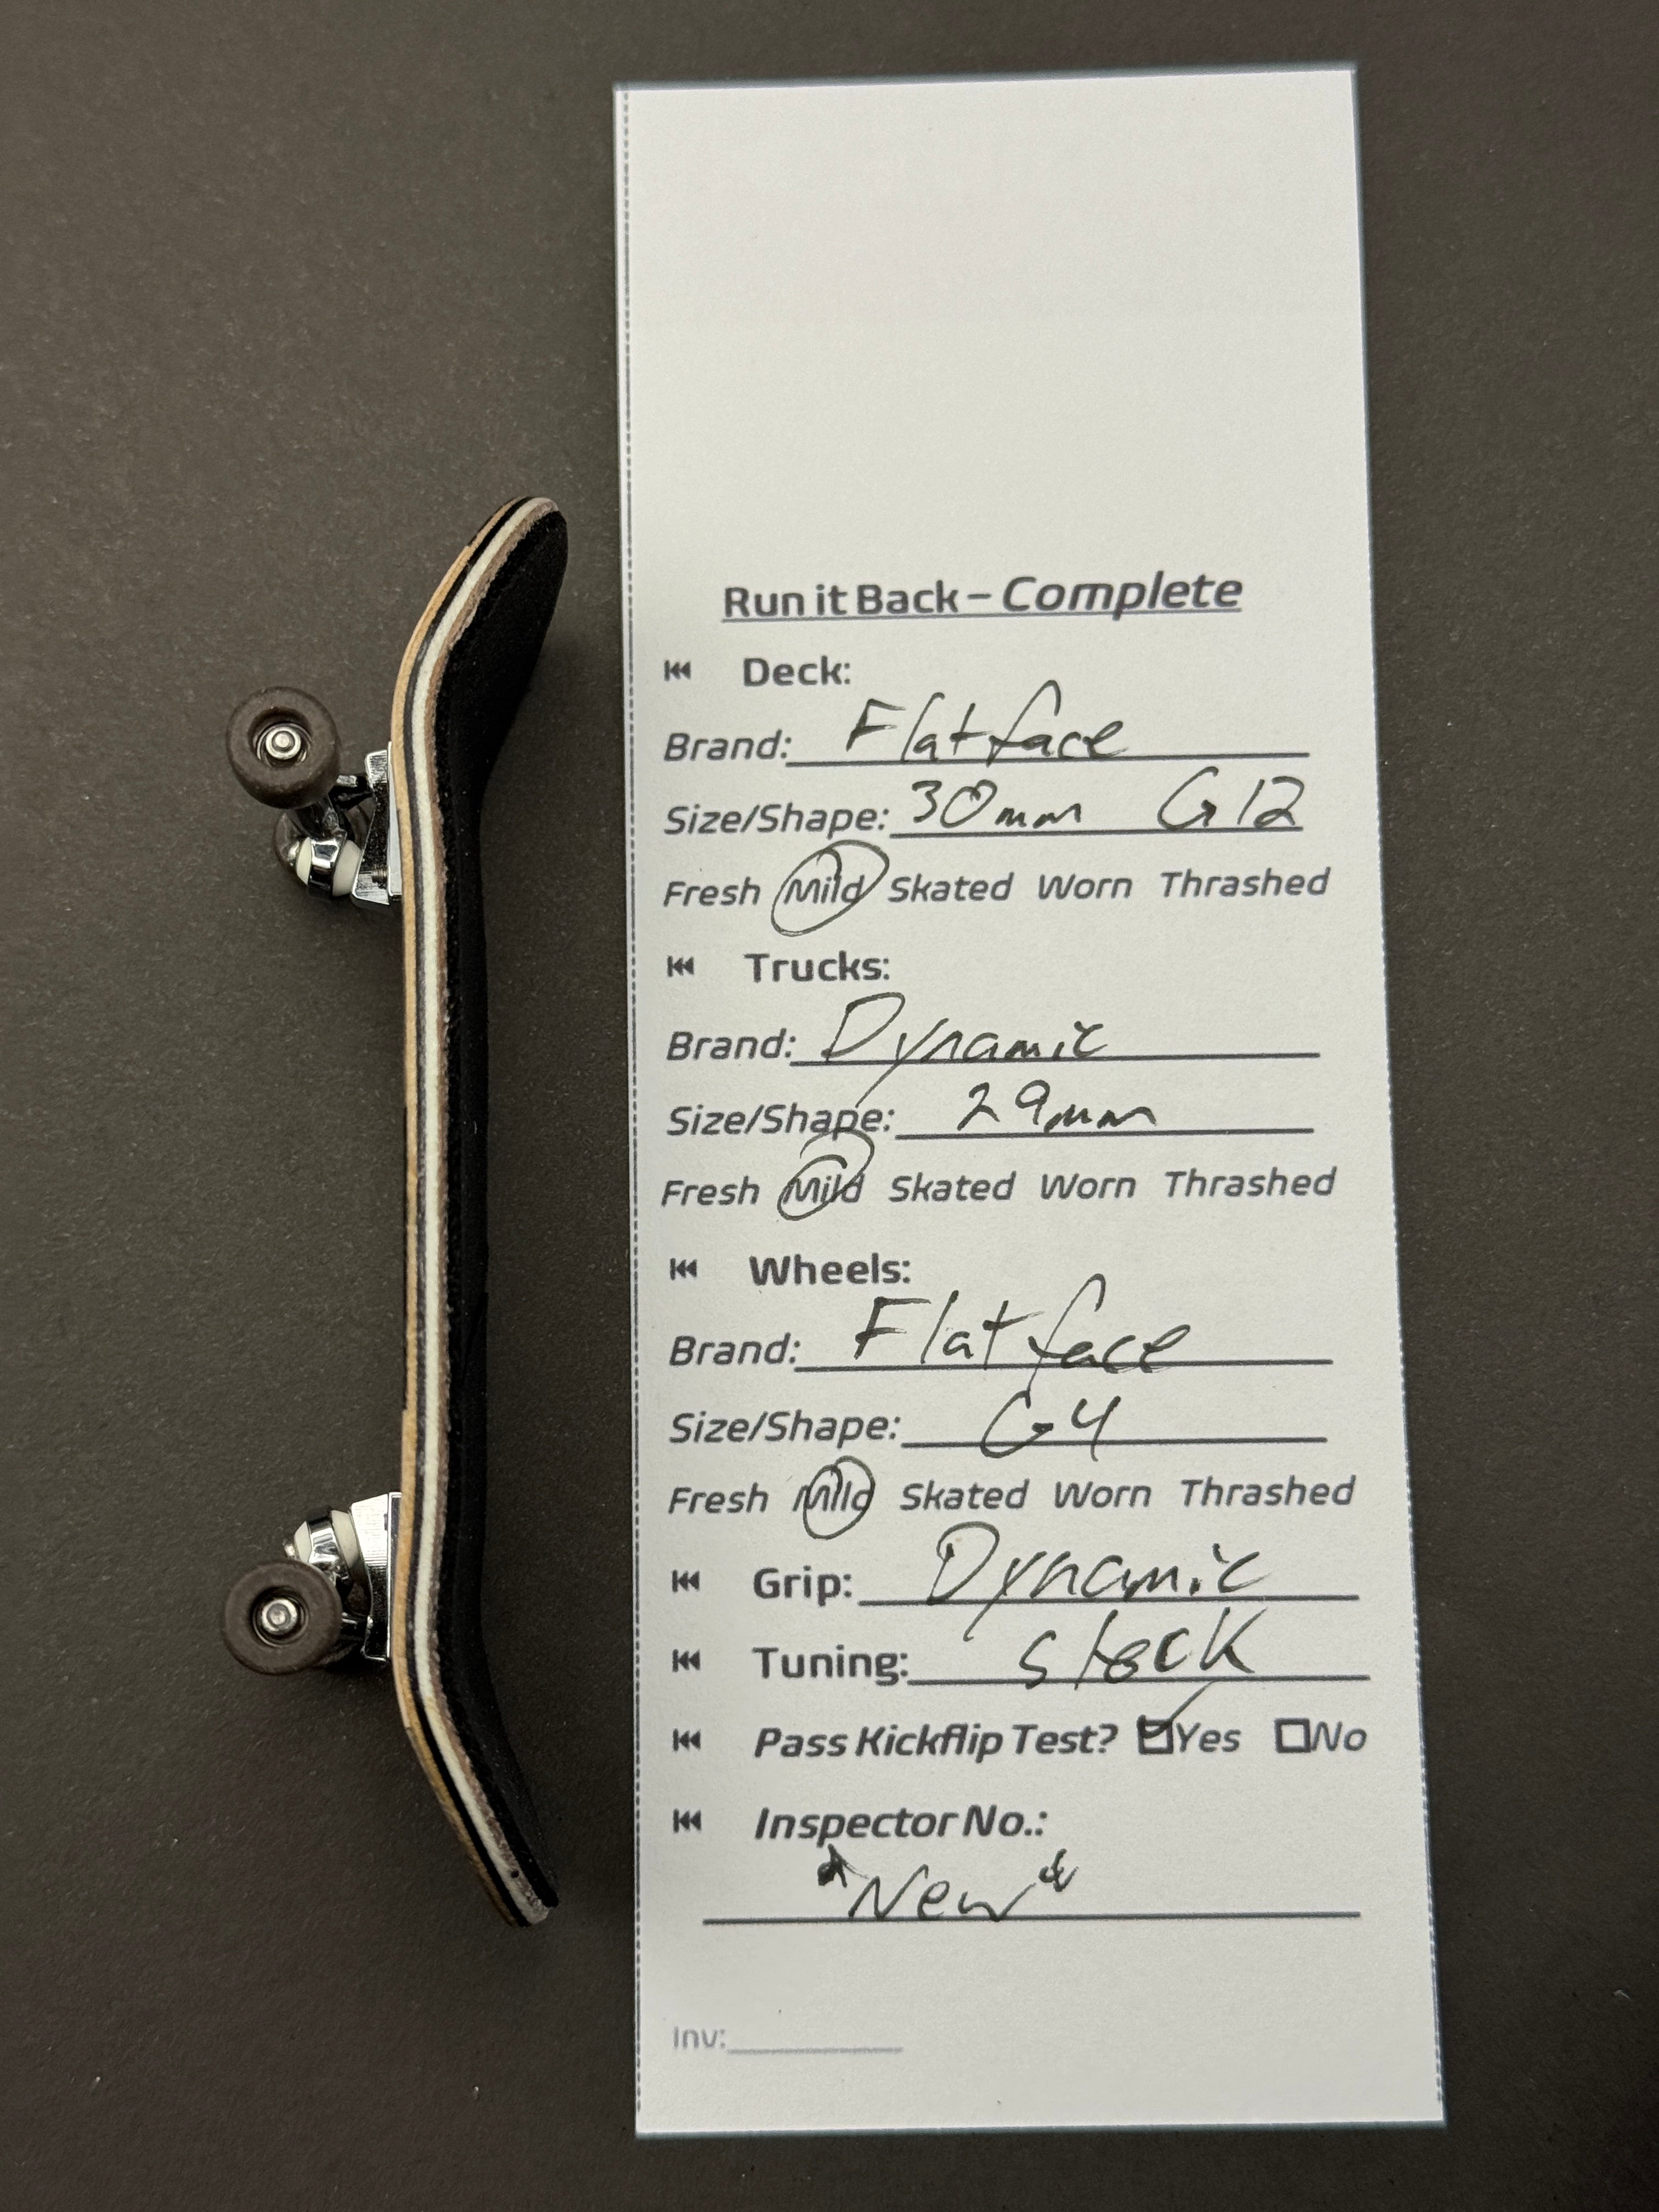 Run it Back – Complete
Deck:
Brand: Flatface
Size/Shape: 30mm G12
Fresh Mild Skated Worn Thrashed
Trucks:
Brand: Dynamic
Size/Shape: 29mm
Fresh Mild Skated Worn Thrashed
Wheels:
Brand: Flatface
Size/Shape: G4
Fresh Mild Skated Worn Thrashed
Grip: Dynamic
Tuning: stock
Pass Kickflip Test? ☑Yes ☐No
Inspector No.:
*New*
Inv: